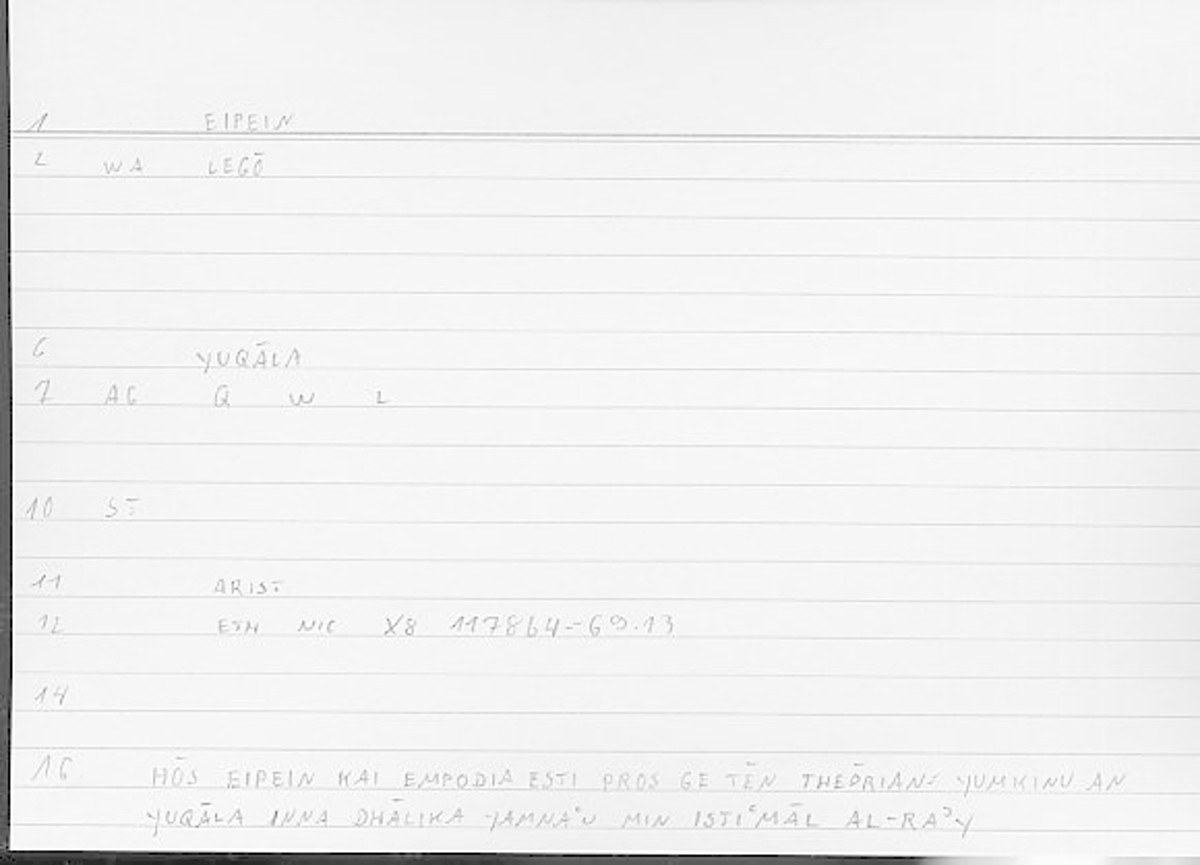 1 EIPEIN
2 WA LEGŌ
6 YUQĀLA
7 AG Q W L
10 ST
11 ARIST
12 ETH NIC X8 1178b4-6 9.13
14
16 HŌS EIPEIN KAI EMPODIA ESTI PROS GE TĒN THEŌRIAN= YUMKINU AN
YUQĀLA INNA DHĀLIKA YAMNAʿU MIN ISTIʿMĀL AL-RAʾY